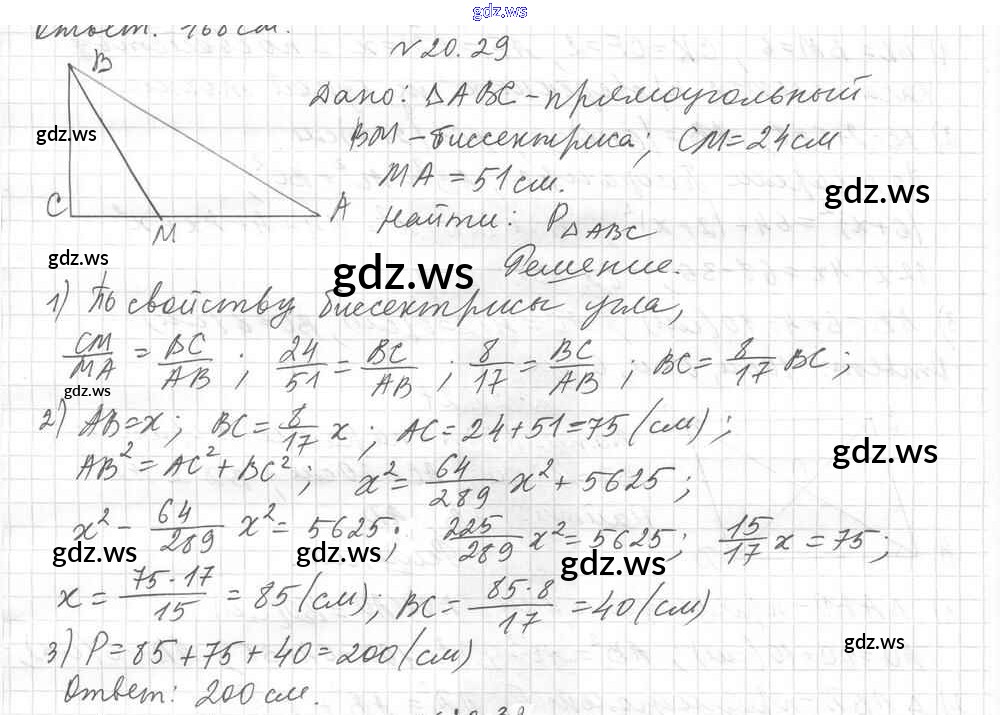 gdz.ws
Ответ: 160 см.
N 20.29
B
Дано: ΔABC - прямоугольный
gdz.ws
BM - биссектриса; CM = 24 см
MA = 51 см.
gdz.ws
C
M
A
Найти: P ΔABC
gdz.ws
gdz.ws
Решение.
1) По свойству биссектрисы угла,
CM/MA = BC/AB ; 24/51 = BC/AB ; 8/17 = BC/AB ; BC = 8/17 BC ;
gdz.ws
2) AB = x ; BC = 8/17 x ; AC = 24 + 51 = 75 (см) ;
gdz.ws
AB² = AC² + BC² ; x² = 64/289 x² + 5625 ;
x² - 64/289 x² = 5625 ; 225/289 x² = 5625 ; 15/17 x = 75 ;
gdz.ws
gdz.ws
gdz.ws
x = 75·17/15 = 85 (см) ; BC = 85·8/17 = 40 (см)
3) P = 85 + 75 + 40 = 200 (см)
gdz.ws
Ответ: 200 см.